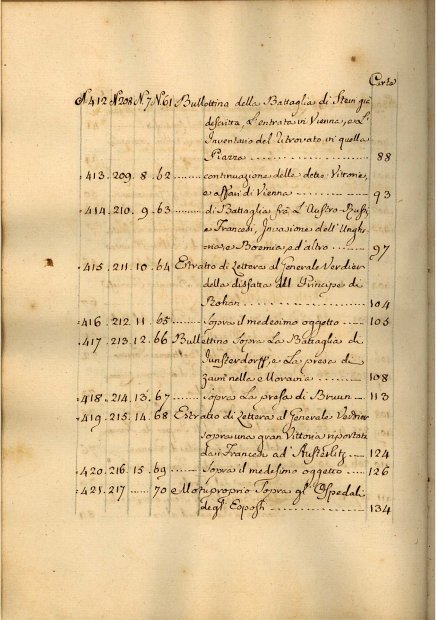 Carte
N. 412. N. 208. N. 7 N. 61 Bullottina della Battaglia di Stein già
descritta, L'entrata in Vienna, e L'
Inventario del ritrovato in quella
Piazza ............ 88
413. 209. 8. 62 ........ continuazione delle dette Vittorie,
e affari di Vienna ........ 93
414. 210. 9. 63 ........ di Battaglia frà L'Austro Russi,
e Francesi, Invasione dell'Ungheria, e Boemia, e d'altro ........ 97
415. 211. 10. 64 Estratto di Lettera al Generale Verdier
della disfatta del Principe di
Rohan ............ 104
416. 212. 11. 65 ........ Sopra il medesimo oggetto ...... 105
417. 213. 12. 66 Bullettino Sopra La Battaglia di
Junsterdorff, e La presa di
Zaim nella Moravia ........ 108
418. 214. 13. 67 ........ Sopra La presa di Bruun .... 113
419. 215. 14. 68 Estratto di Lettera al Generale Verdier
sopra una gran Vittoria riportata
dai Francesi ad Austerlitz ..... 124
420. 216. 15. 69 ........ Sopra il medesimo oggetto .... 126
421. 217 ...... 70 Motuproprio Sopra gl'Ospedali
degl'Esposti ............ 134